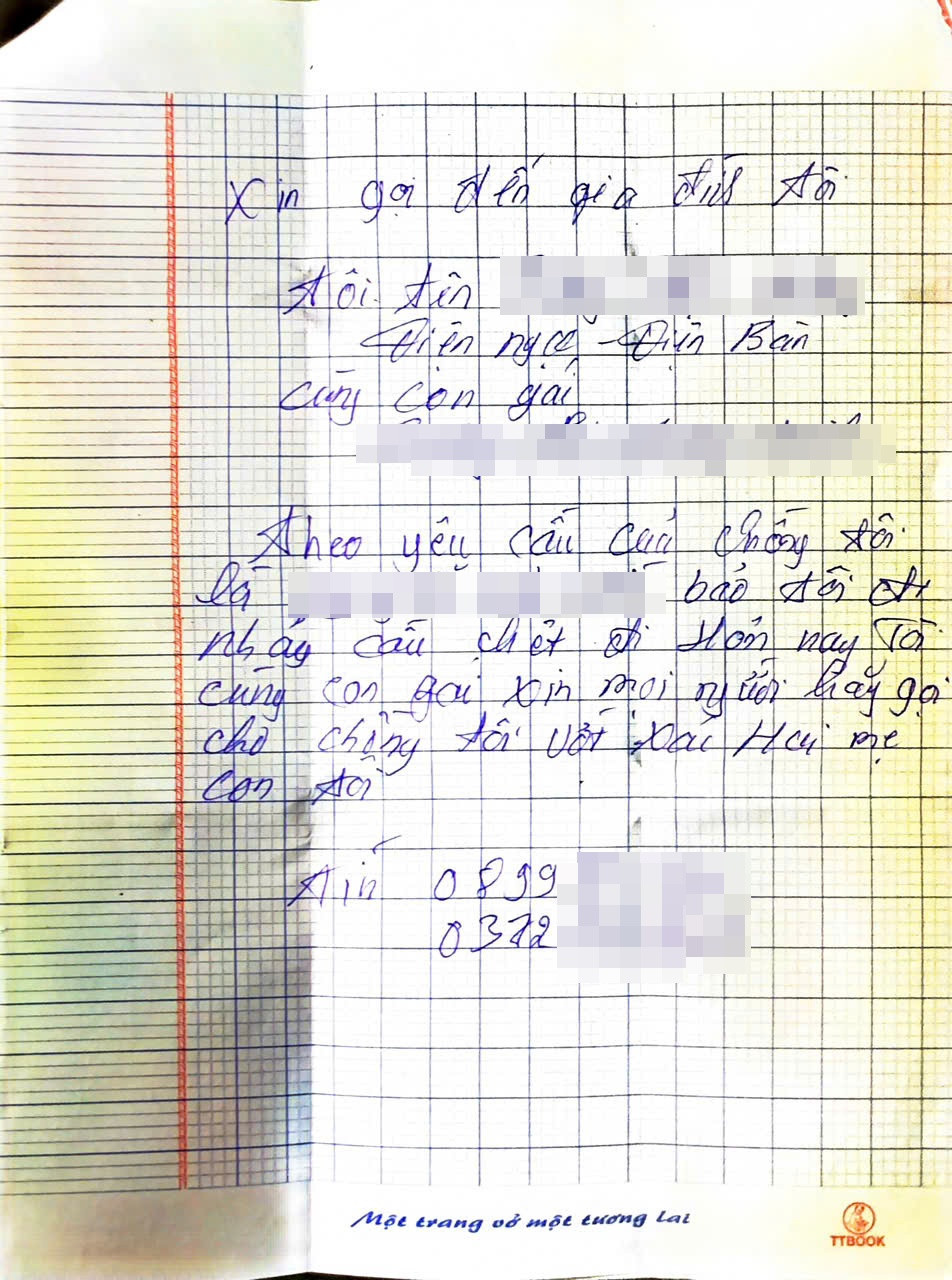 Xin gọi đến gia đình tôi
tôi tên
Điện ngọc - Điện Bàn
cùng con gái
Theo yêu cầu của chồng tôi
là bảo tôi đi
nhảy cầu chết đi Hôm nay Tôi
cùng con gái xin mọi người hãy gọi
cho chồng tôi vớt xác Hai mẹ
con tôi
0899
0372
Một trang vở một tương lai
TTBOOK